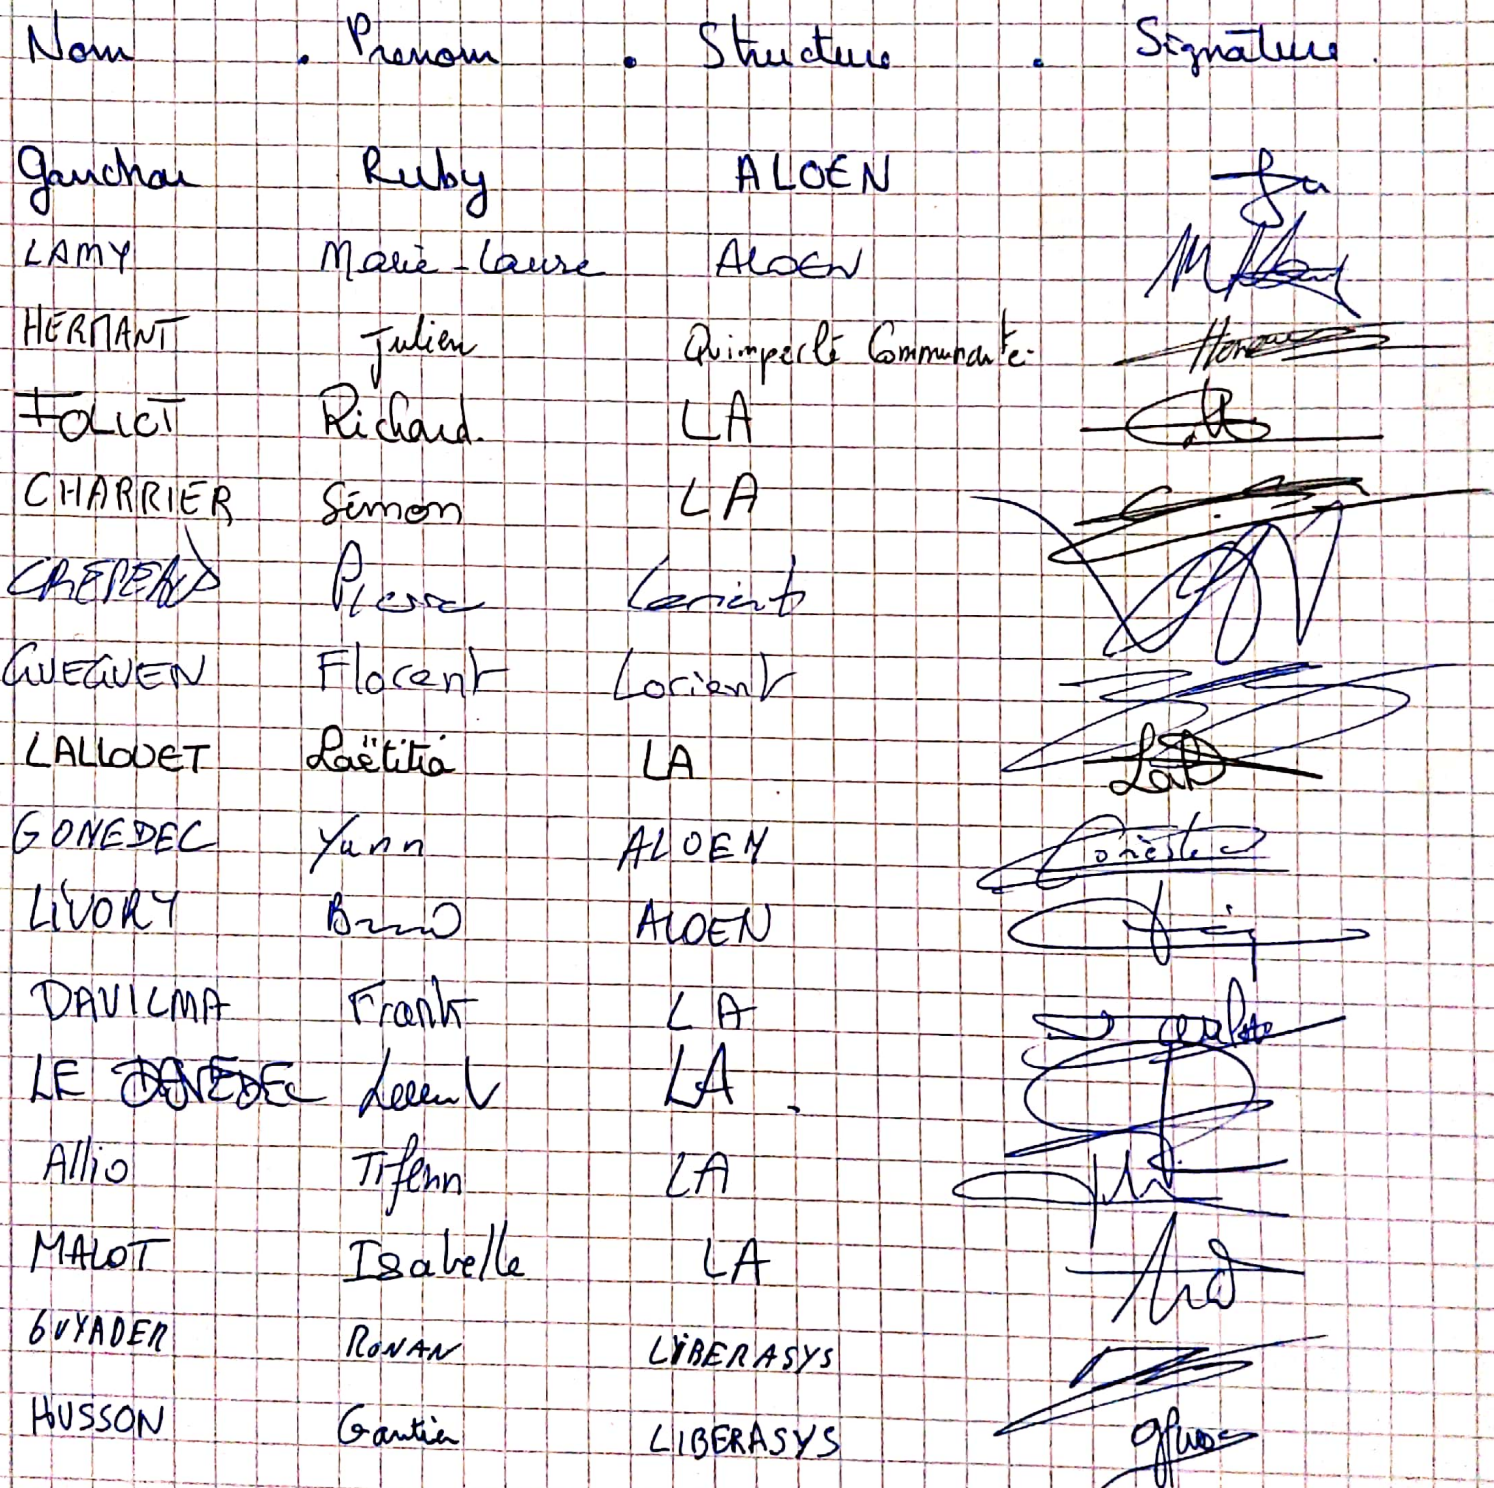 Nom . Prenom . Structure . Signature.
Ruby ALOEN
LAMY Marie-Laure ALOEN
HERMANT Julien Quimperlé Communauté
FOLICT Richard LA
CHARRIER Simon LA
CREPEAU Pierre Lorient
GUEGUEN Florent Lorient
LALLOUET Laëtitia LA
GONEDEC Yann ALOEN
LIVORY Bruno ALOEN
DAVILMA Frank LA
LE LA
Allio Tifenn LA
MALOT Isabelle LA
GUYADER RONAN LIBERASYS
HUSSON Gautier LIBERASYS